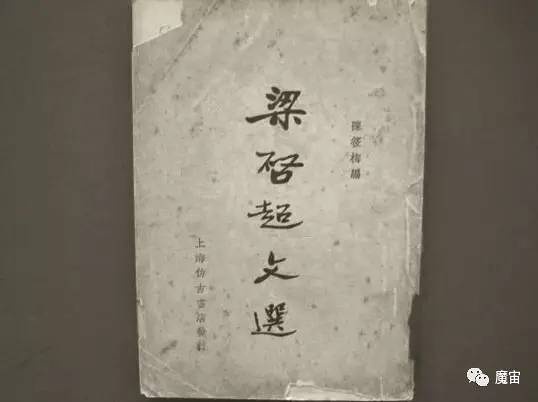 陳筱梅編
梁啓超文選
上海仿古書店發行
魔宙